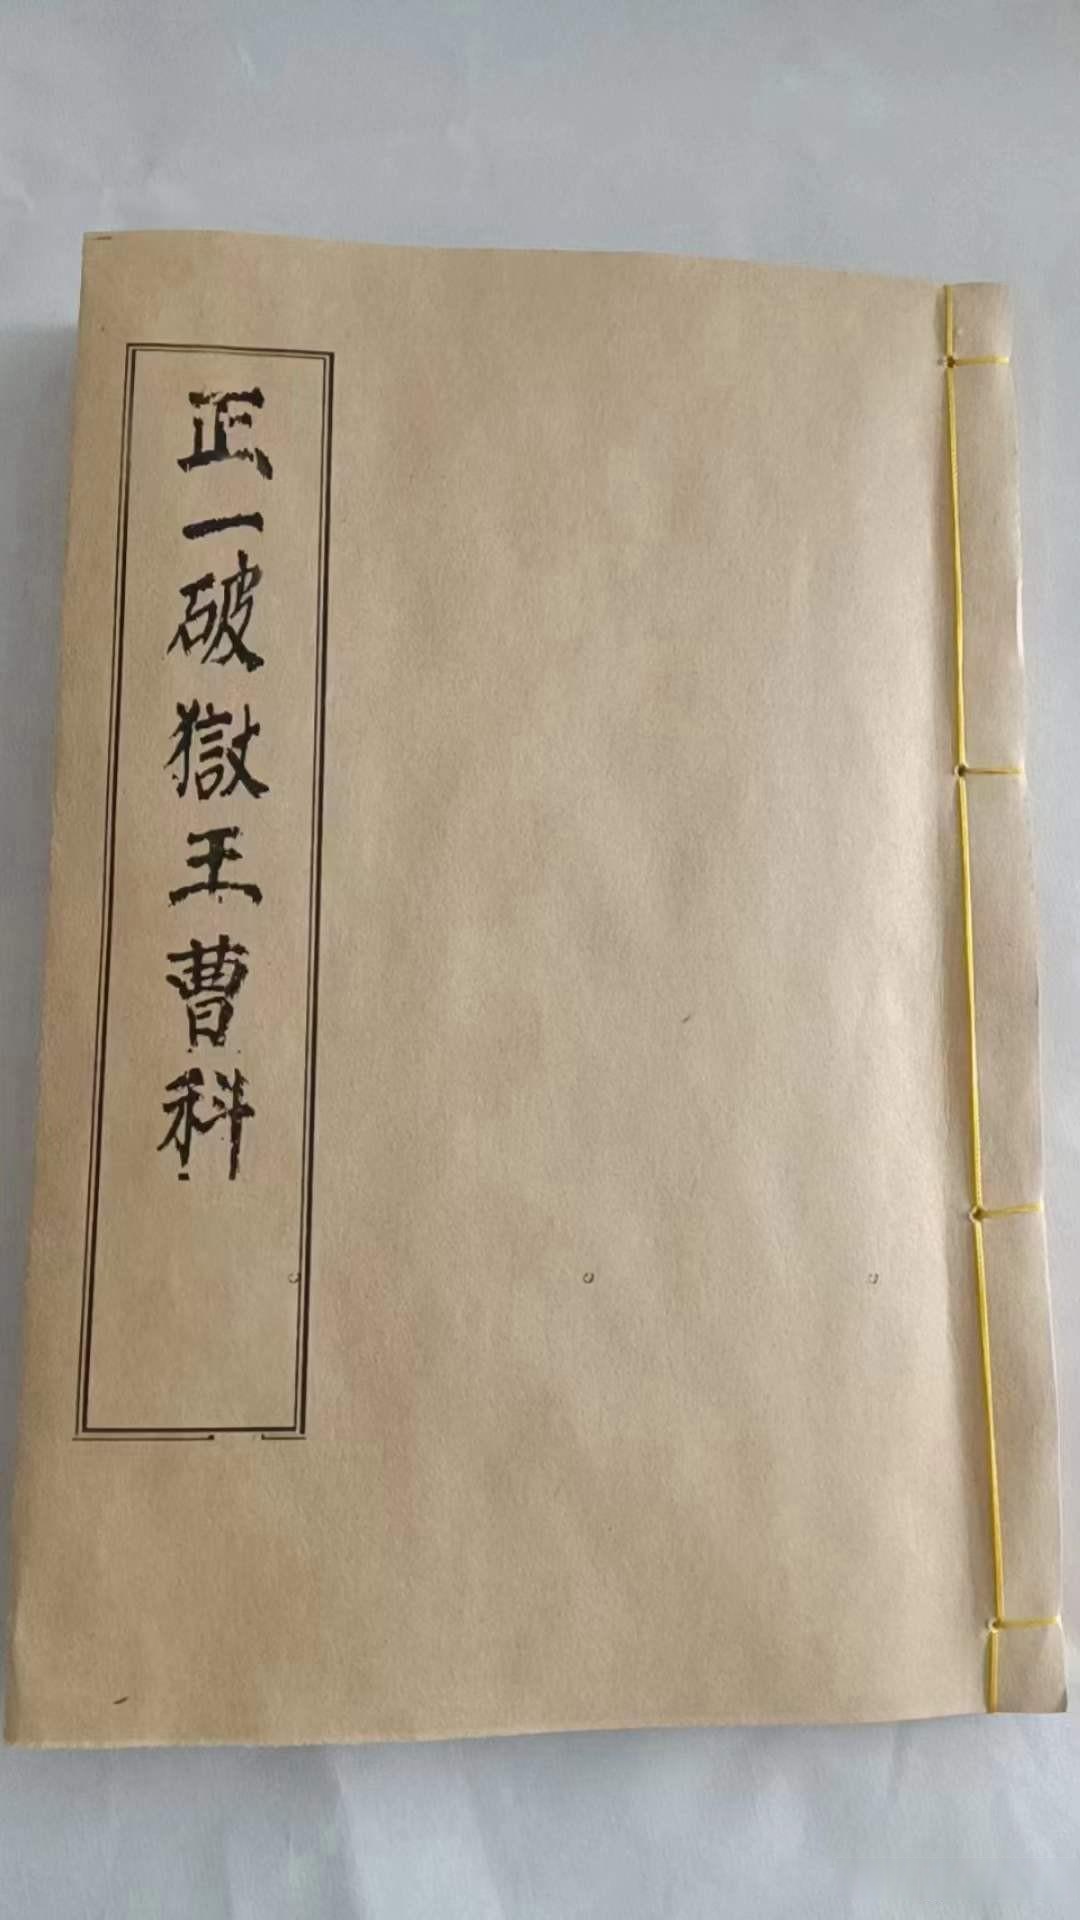 正一破獄王曹科